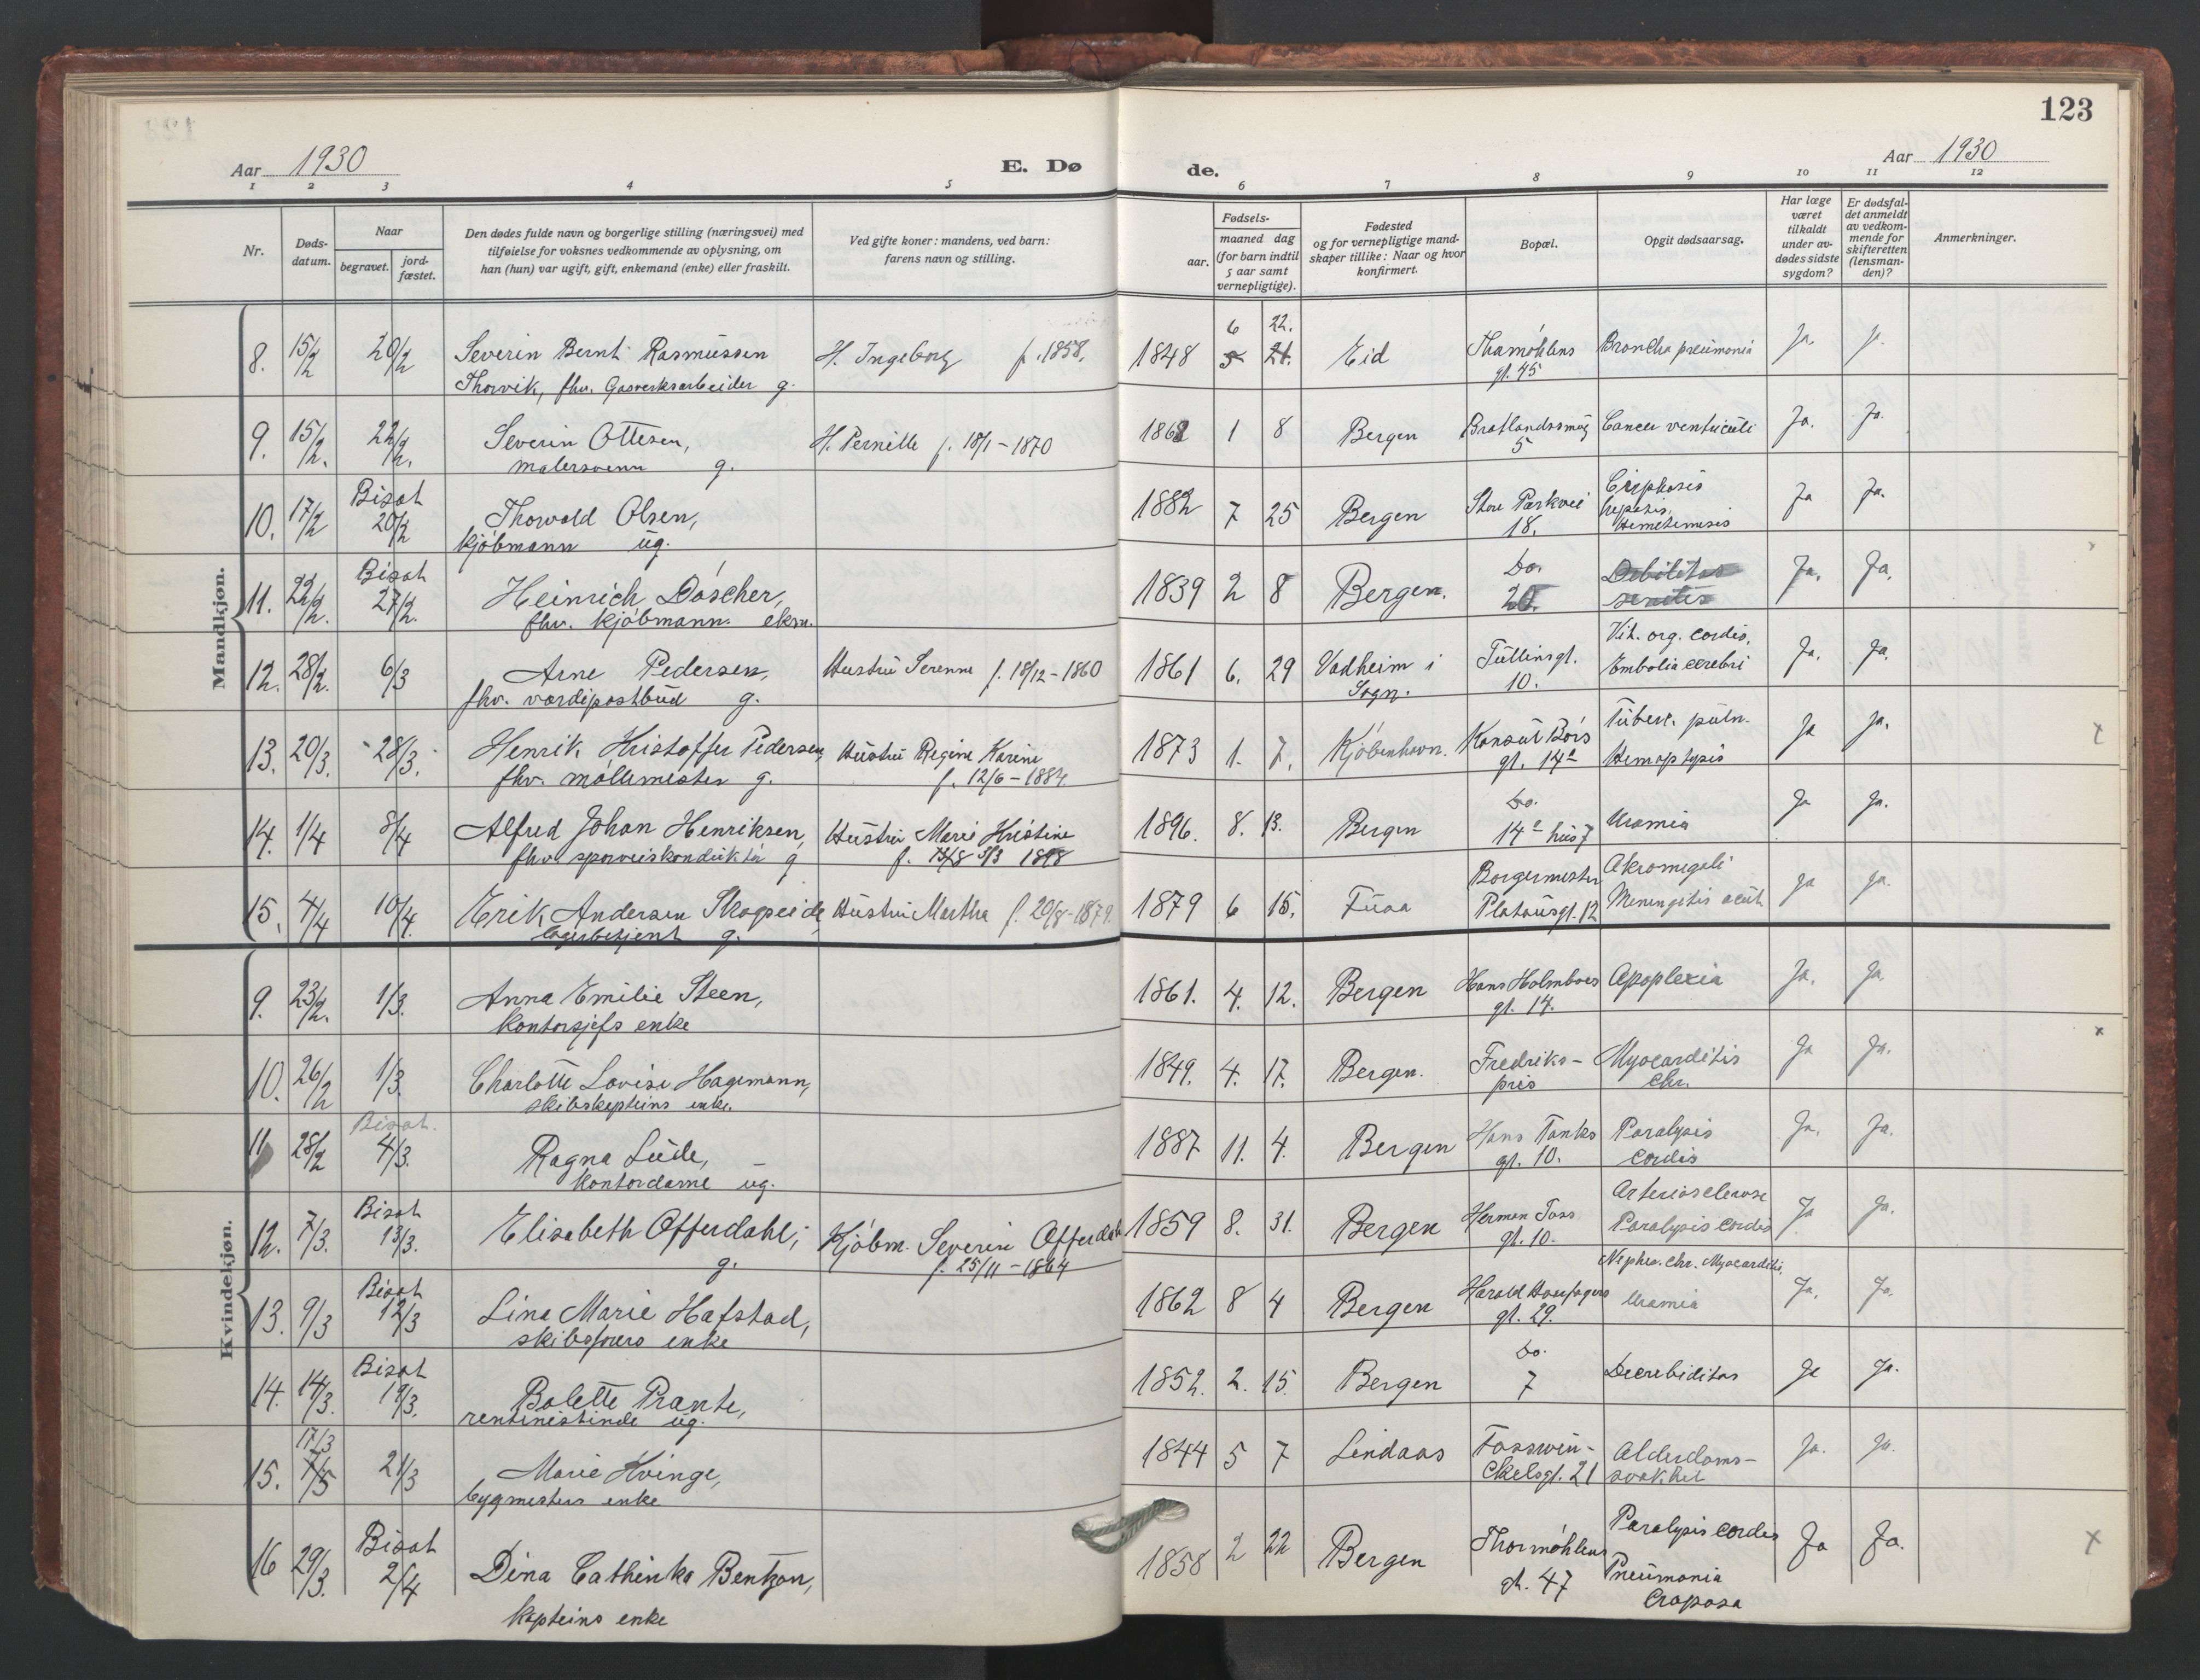 123
Aar 1930
E. Dø
de.
Aar 1930
1 2 3 4 5 6 7 8 9 10 11 12
Nr.
Døds-
datum.
Naar
begravet.
jord-
fæstet.
Den dødes fulde navn og borgerlige stilling (næringsvei) med
tilføielse for voksnes vedkommende av oplysning, om
han (hun) var ugift, gift, enkemand (enke) eller fraskilt.
Ved gifte koner: mandens, ved barn:
farens navn og stilling.
Fødsels-
aar.
maaned dag
(for barn indtil
5 aar samt
vernepligtige).
Fødested
og for vernepligtige mand-
skaper tillike: Naar og hvor
konfirmert.
Bopæl.
Opgit dødsaarsag.
Har læge
været
tilkaldt
under av-
dødes sidste
sygdom?
Er dødsfal-
det anmeldt
av vedkom-
mende for
skifteretten
(lensman-
den)?
Anmerkninger.
Mandkjøn.
6 22.
8. 15/2 20/2 Severin Bernt Rasmussen H. Ingeborg f. 1858. 1848 5 21. Eid Thamøhlens Broncho pneumonia Ja. Ja.
Thorvik, fhv. Gasverksarbeider g. gt. 45
9. 15/2. 22/2. Severin Ottesen, H. Pernille f. 18/1-1870 1862 1 8 Bergen Bratlandssmug Cancer ventriculi Ja. Ja.
malersvenn g. 5
Bisat Cirrhosis
10. 17/2 20/2 Thorvald Olsen, 1882 7 25 Bergen Store Parkvei hepatis, Ja Ja.
kjøbmann ug. 18. Hemetemesis
Bisat Do. Debilitas
11. 22/2. 27/2. Heinrich Döscher, 1839 2 8 Bergen. 20. senilis Ja. Ja.
fhv. kjøbmann. ekm.
Vit. org. cordis,
12. 28/2. 6/3 Arne Pedersen, Hustru Serenne f. 18/12-1860 1861 6. 29 Vadheim i Tullinsgt. Embolia cerebri Ja. Ja.
fhv. verdipostbud g. Sogn. 10.
Tuberc. pulm.
13. 20/3. 28/3. Henrik Kristoffer Pedersen, Hustru Regine Karine 1873 1. 7. Kjøbenhavn. Konsul Børs Hemoptysis Ja Ja. x
fhv. møllemester g. f. 12/6-1884. gt. 14a
Do.
14. 1/4 8/4 Alfred Johan Henriksen, Hustru Marie Kristine 1896. 8. 13. Bergen 14a hus 7 Uramia Ja Ja.
fhv. sporveiskonduktør g f. 13/8 3/3 1898
Borgermester Akromegali
15. 4/4 10/4. Erik Andersen Skogseide, Hustru Martha f. 20/8-1879. 1879 6 15. Fuaa Platousgt. 12 Meningitis acut. Ja Ja.
lagerbetjent g.
Kvindekjøn.
9. 23/2. 1/3. Anna Emilie Steen, 1861. 4. 12. Bergen Hans Holmboes Apoplexia Ja. Ja.
kontorsjefs enke gt. 14.
x
10. 26/2 1/3. Charlotte Lovise Hagemann, 1849. 4. 17. Bergen. Fredriks- Myocarditis Ja Ja.
skibskapteins enke. pris Chr.
Bisat.
11 28/2 4/3. Ragna Lude, 1887 11. 4. Bergen Hans Tanks Paralysis Ja. Ja.
kontordame ug. gt. 10. cordis
Bisat Arteriosclerose
12. 7/3. 13/3. Elisabeth Offerdahl, Kjøbm. Severin Offerdahl 1859 8. 31. Bergen Herman Foss Paralysis cordis Ja Ja.
g. f. 25/11-1864 gt. 10.
Bisat Nephr. chr. Myocarditis,
13. 9/3 12/3 Lina Marie Hafstad, 1862 8 4 Bergen Harald Haarfagers Uramia Ja. Ja.
skibsførers enke gt. 29.
Bisat Do.
14. 14/3. 19/3. Bolette Prante, 1852. 2. 15. Bergen 7 Decrebiditas Ja Ja.
rentenistinde ug.
17/3
15. 7/5 21/3 Marie Hvinge, 1844 5 7 Lindaas Fosswin- Alderdoms- Ja. Ja.
bygmesters enke ckelsgt. 21 svakhet
Bisat Paralysis cordis
16 29/3. 2/4 Dina Cathinka Bentzon, 1858 2 22 Bergen Thormøhlens Pneumonia Ja Ja. x
kapteins enke gt. 47 Croposa